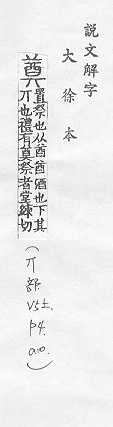 説文解字
大徐本
奠
置祭也从酋酋酒也下其
丌也禮有奠祭者堂練切
(丌部
V5上.
P4.
a.0.)